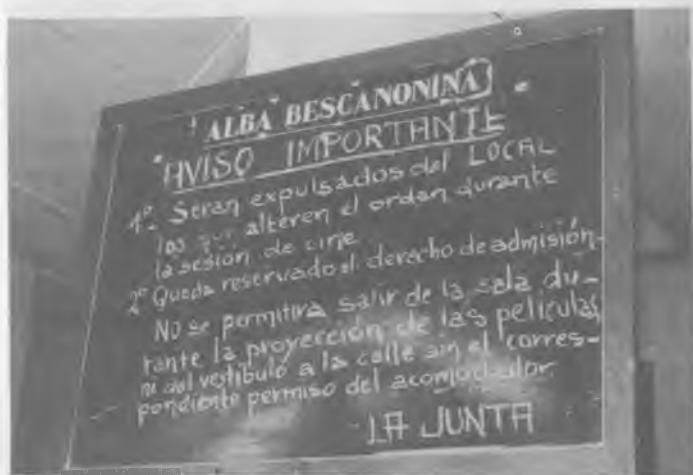 ALBA BESCANONINA
AVISO IMPORTANTE
1º- Seran expulsados del LOCAL
los que alteren el orden durante
la sesión de cine
2º Queda reservado el derecho de admisión-
No se permitira salir de la sala du-
rante la proyección de las peliculas,
ni del vestibulo a la calle sin el corres-
pondiente permiso del acomodador.
LA JUNTA